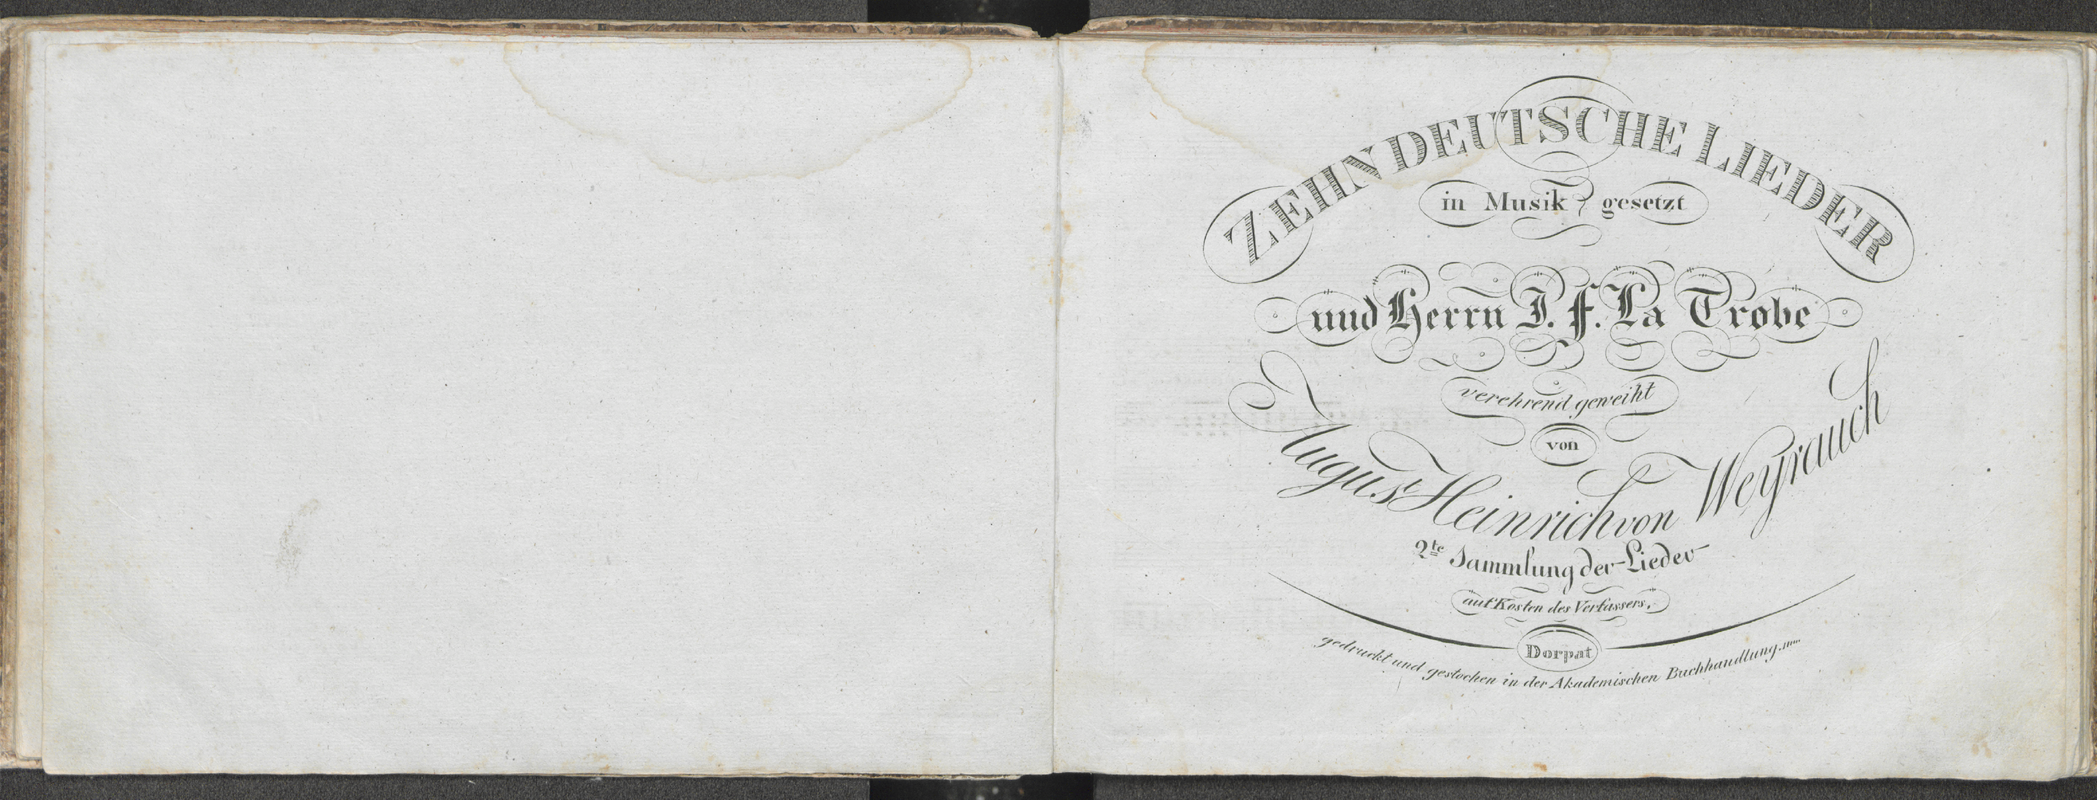 ZEHN DEUTSCHE LIEDER
in Musik gesetzt
und Herrn I. F. La Trobe
verehrend geweiht
von
August Heinrich von Weyrauch
2te Sammlung der Lieder
auf Kosten des Verfassers,
Dorpat
gedruckt und gestochen in der Akademischen Buchhandlung.